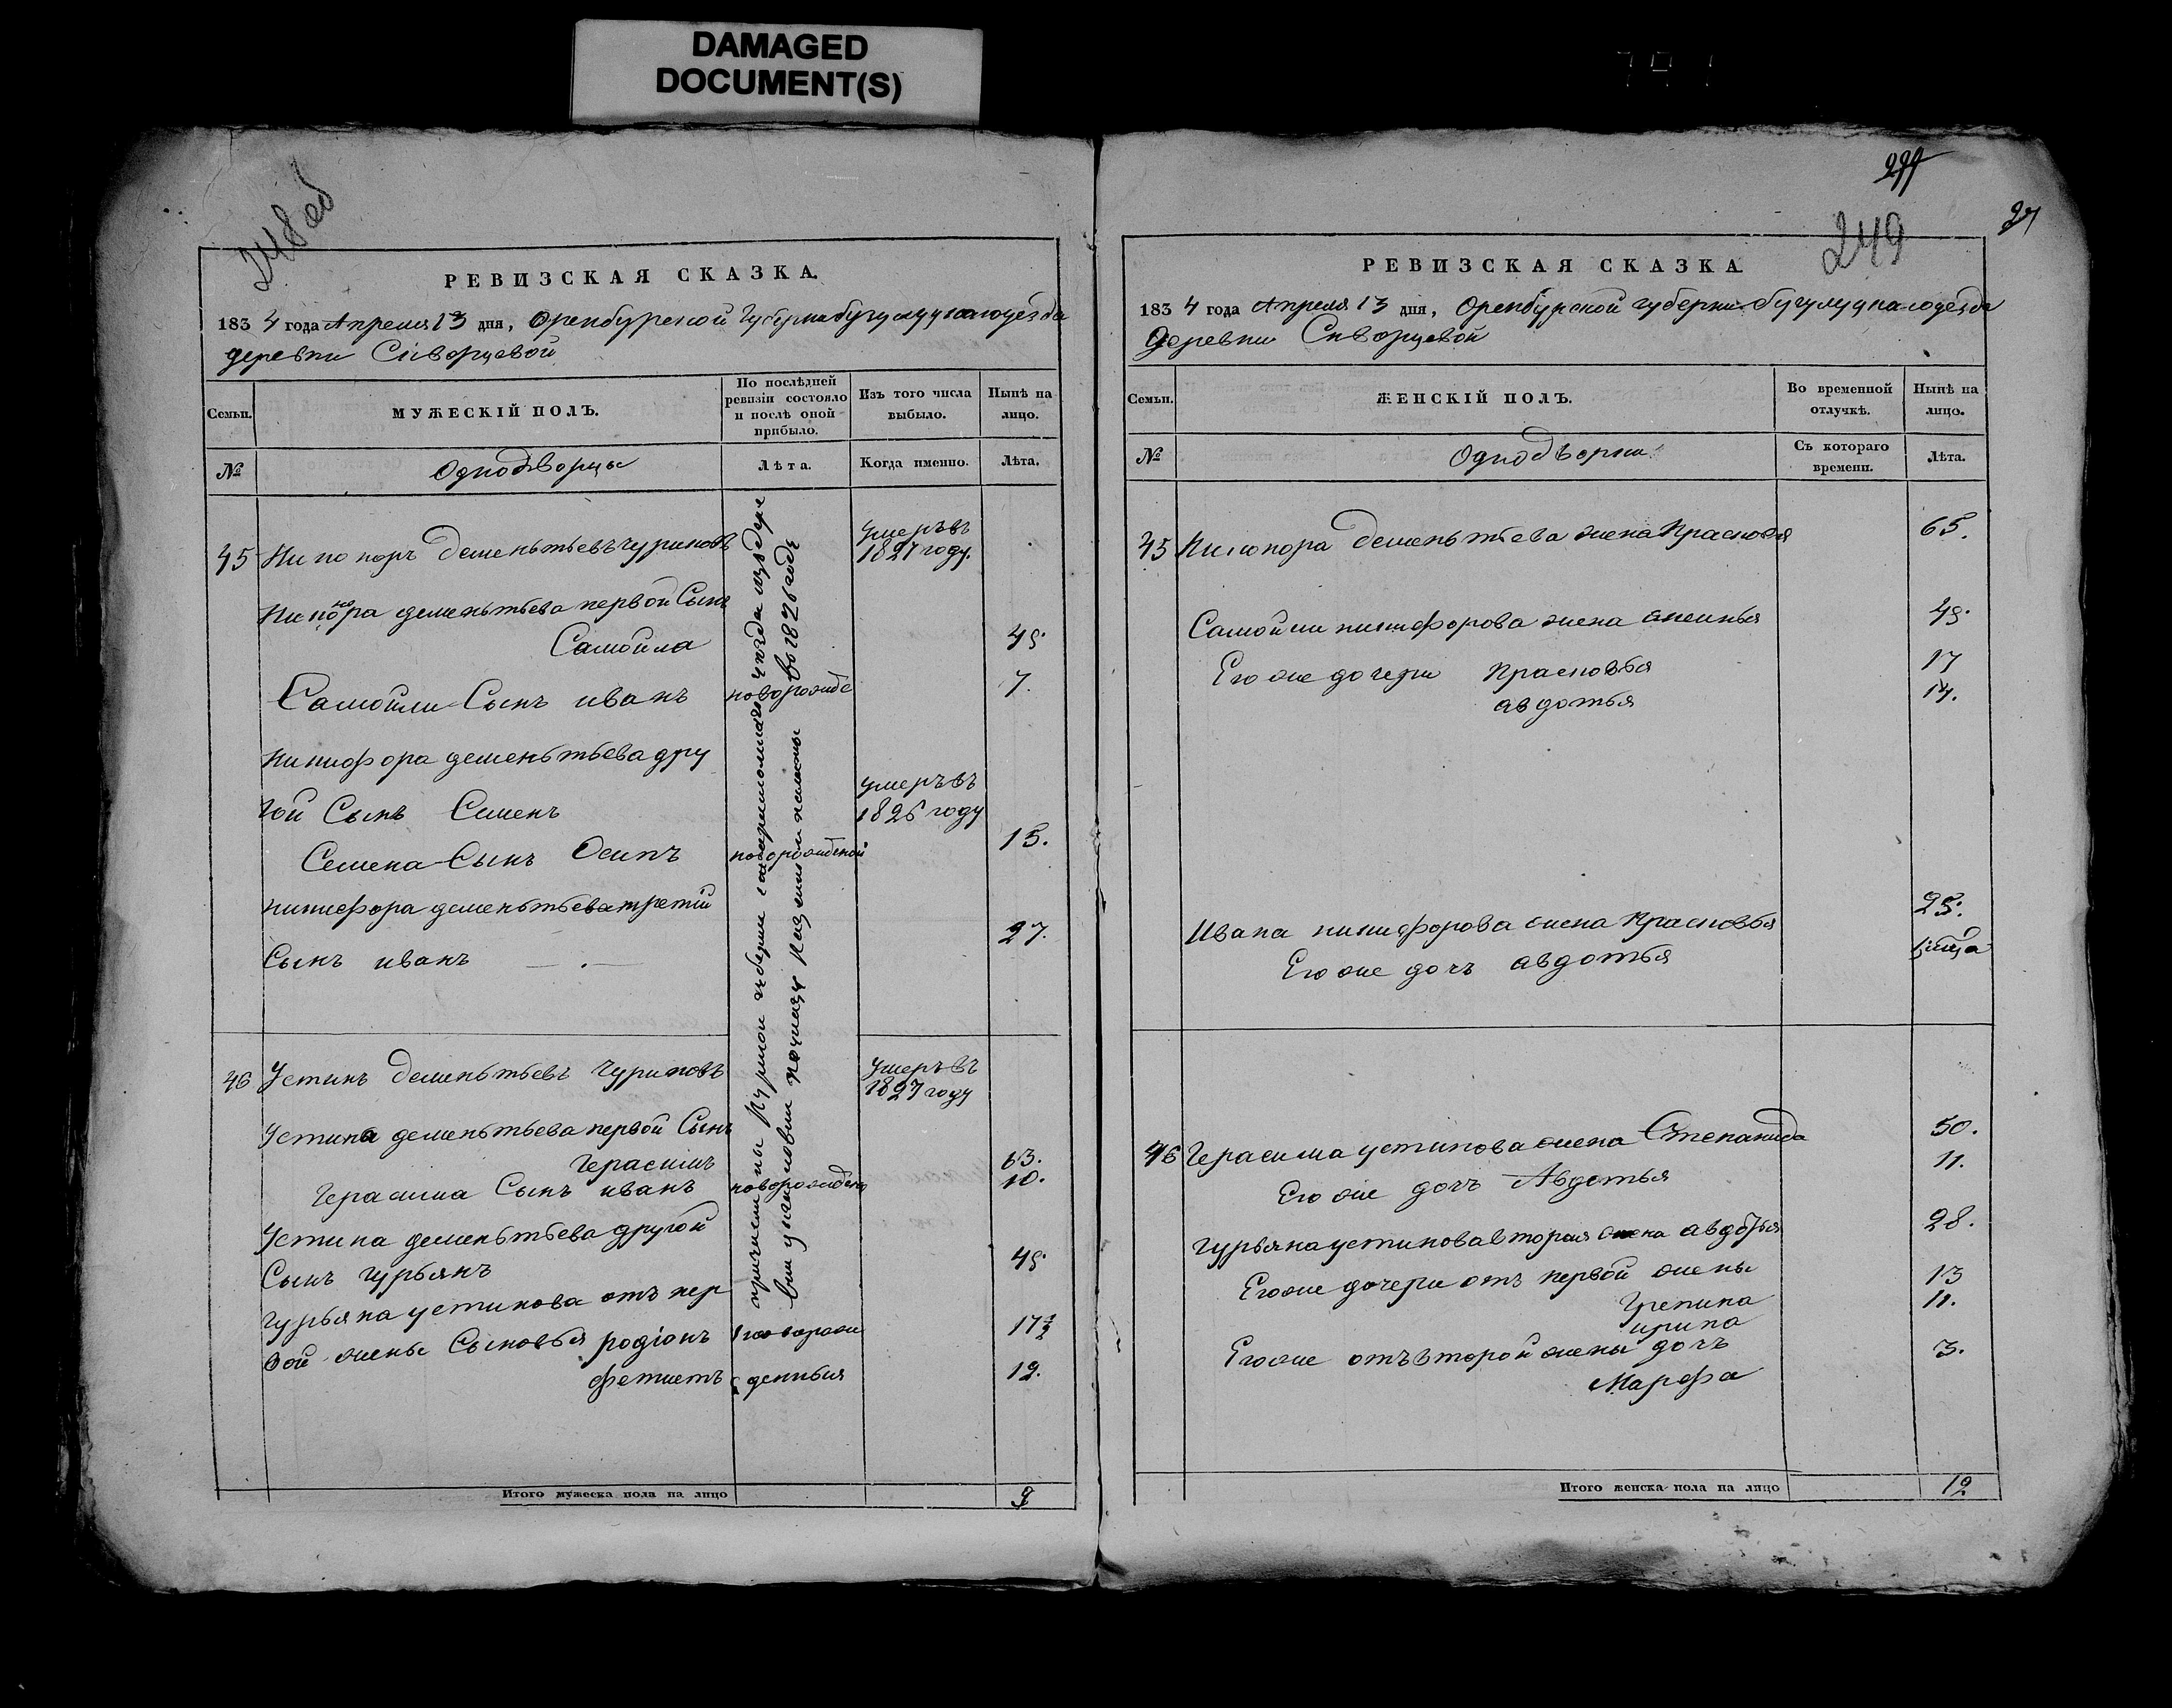 DAMAGED
DOCUMENT(S)
248 об
РЕВИЗСКАЯ СКАЗКА.
1834 года Апреля 13 дня, Оренбурской Губерни бугулуцкаго уезда
деревни Скворцевой
Семьи.
МУЖЕСКІЙ ПОЛЪ.
По послѣдней ревизіи состояло и послѣ оной прибыло.
Изъ того числа выбыло.
Нынѣ на лицо.
№
Однодворцы
Лѣта.
Когда именно.
Лѣта.
45 Никонор Дементьевъ Чуриковъ
умеръ въ
1827 году.
Никонора дементьева первой Сынъ
Самойла
45
Самойлы Сынъ иванъ новорожде 7.
никифора дементьева дру
гой Сынъ Семенъ
умеръ въ
1826 году
Семена Сынъ Осипъ новорожденой 15.
никифора дементьева третій
Сынъ иванъ
27.
губерни
во 1826 годе
46 Устинъ дементьевъ Чуриковъ
умеръ въ
1827 году
Устина дементьева первой Сынъ
Герасимъ 63.
Герасима Сынъ иванъ новорожденой 10.
Устина дементьева другой
Сынъ гурьянъ
45
гурьяна устинова отъ пер
вой жены Сыновья родіонъ новорож 17½
фетистъ денныя 12.
Итого мужеска пола на лицо
9
249
27
РЕВИЗСКАЯ СКАЗКА
1834 года Апреля 13 дня, Оренбурской губерни бугулуцкаго уезда
Деревни Скворцевой
Семьи.
ЖЕНСКІЙ ПОЛЪ.
Во временной отлучкѣ.
Нынѣ на лицо.
№
Однодворки
Съ котораго времени.
Лѣта.
45 Никонора дементьева жена Прасковья 65.
Самойлы никифорова жена аксинья 45.
Его же дочери Прасковья 17
авдотья 14.
Ивана никифорова жена Прасковья 25.
Его же дочъ авдотья
46 Герасима устинова жена Степанида 50.
Его же дочъ Авдотья 11.
гурьяна устинова вторая жена авдотья 28.
Его же дочери отъ первой жены
Грепина 13
ирина 11.
Его же отъ второй жены дочъ
Марфа 3.
Итого женска пола на лицо
12